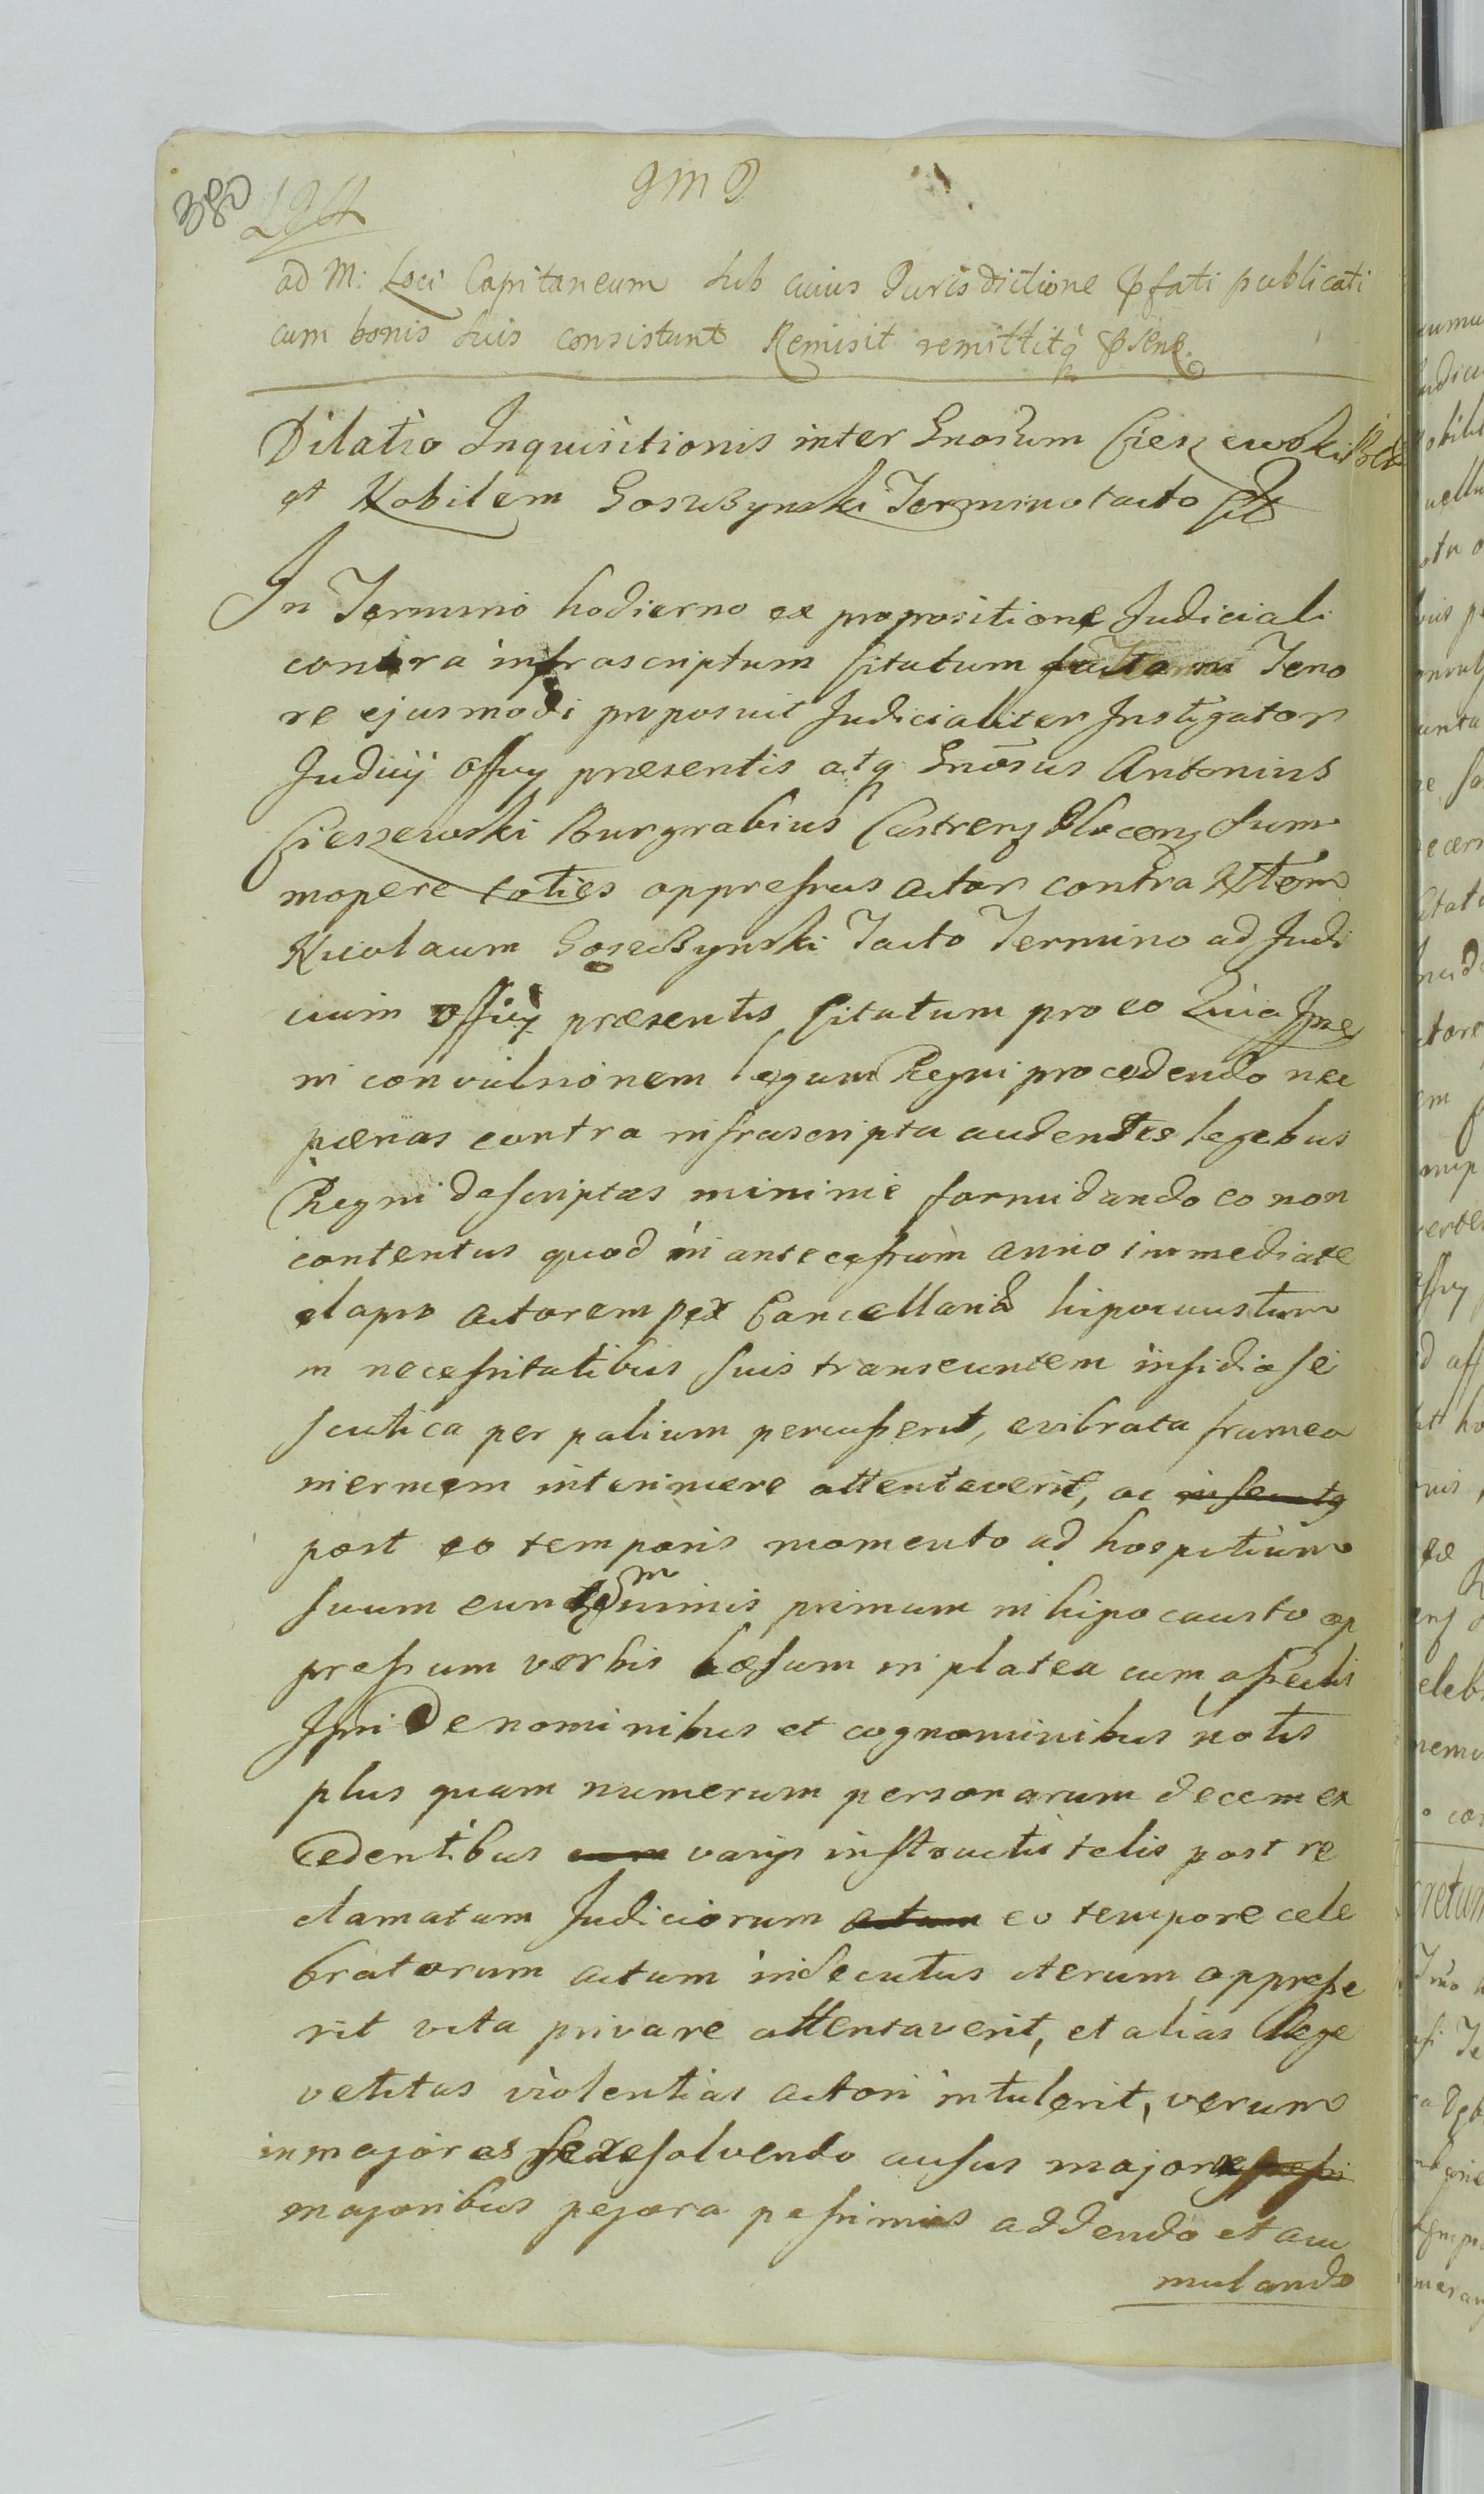 380
gmd
ad M: Loci Capitaneum sub cuius Jurisdictione pfati publicati
cum bonis suis consistunt Remisit remittitq psentt.
Dilatio Inquisitionis inter Gnosum Cieszewski
et Nobilem Termino tacto
In Termino hodierno ex propositione Judiciali
contra infrascriptum Citatum Teno
re ejusmodi proposuit Judicialiter Instigator
Judicij Officy presentis atq Gnosus Antonius
Cieszewski Burgrabius Castren Plocen sum
mopere toties oppressus actor contra Nblem
Nicolaum Tacto Termino ad Judi
cium officij præsentis Citatum pro eo Quia Ipse
in convulsionem legum Regni procedendo nec
pænas contra infrascripta audentes legibus
Regni descriptas minimé formidando eo non
contentus quod in antecessum anno immediate
elapso actorem pex Cancellaria hipocaustum
in necessitatibus suis transeuntem insidiose
scutica per palium percusserit, evibrata framea
inermem interimere attentaverit, ac insecutq
post eo temporis momento ad hospitium
suum primum in hipocausto op
pressum verbis læsum in platea cum asseclis
Ipsi de nominibus et cognominibus notis
plus quam numerum personarum decem ex
cedentibus cum varijs instructis telis post re
clamatum Judiciorum actum eo tempore cele
bratorum actum insecutus iterum oppresse
rit vita privare attentaverit, et alias lege
vetitas violentias actori intulerit, verum
in majores se resolvendo ausus
majoribus pejora pessimis addendo et acu
mulando